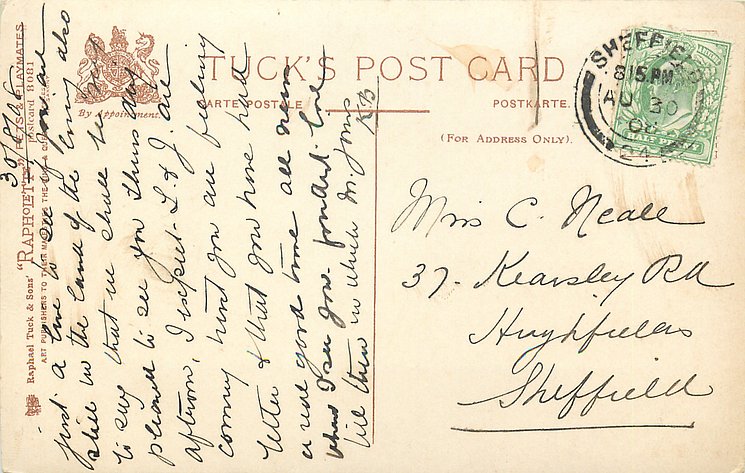 TUCK'S POST CARD
CARTE POSTALE
POSTKARTE.
(FOR ADDRESS ONLY).
By Appointment.
Raphael Tuck & Sons' "RAPHOETTE" PETS & PLAYMATES
postcard 8081
ART PUBLISHERS TO THEIR MAJESTIES THE KING &
SHEFFIELD
8 15 PM
AU 30
24
Miss C. Neale
37. Kearsley Rd
Highfields
Sheffield
30/8/06
Just a line to say I am
still in the land of the living also
to say that we shall be very
pleased to see you Thursday
afternoon, I expect L & J. are
coming
hope you are feeling
better & that you have had
a real good time all news
when I see you fondest love
till then in which Mr Jones
KB